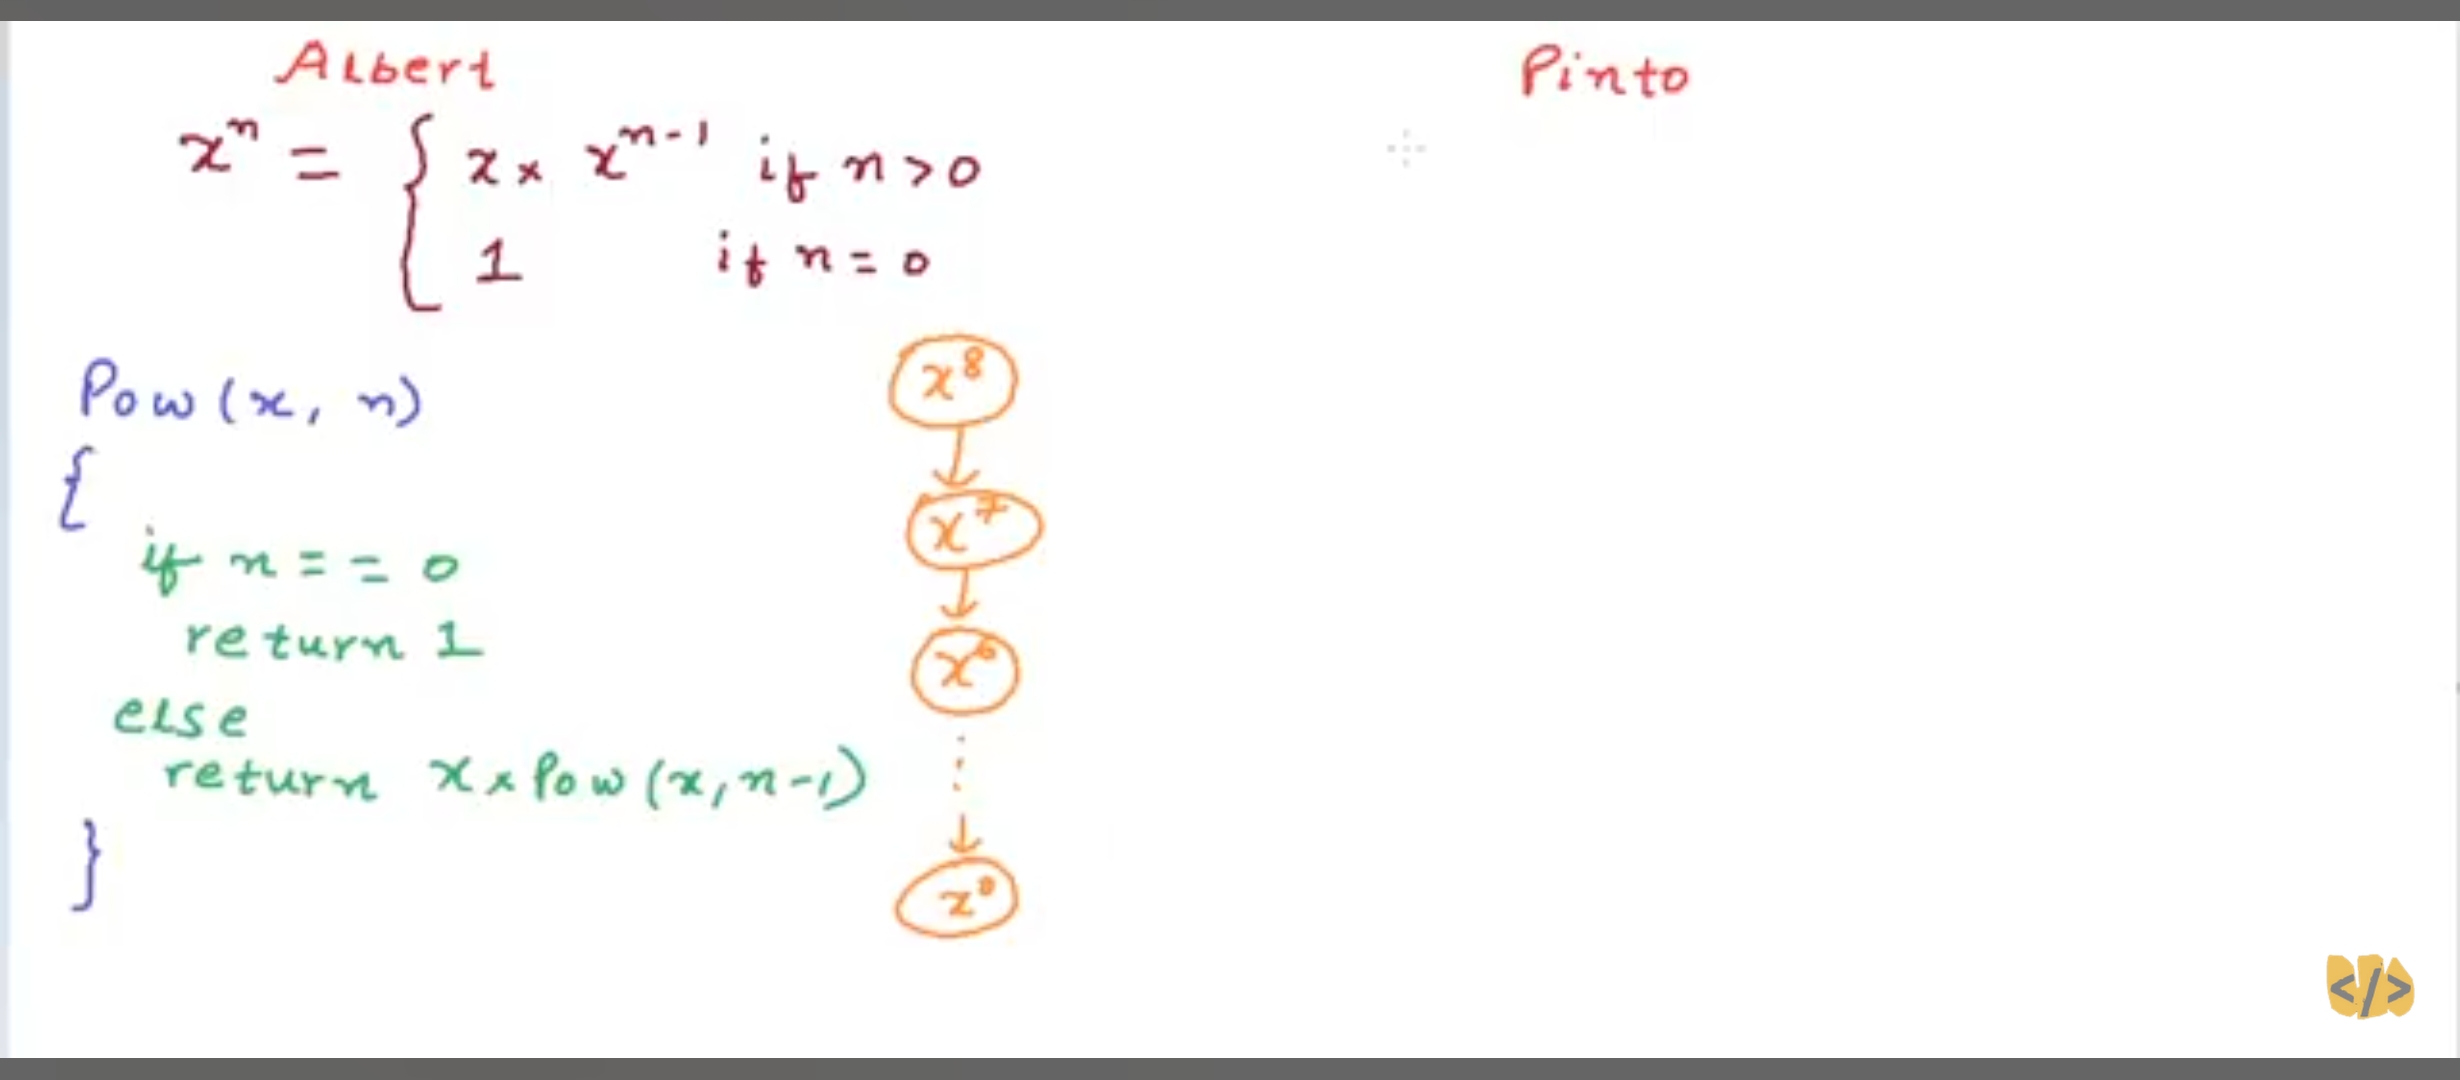 Albert
Pinto
xⁿ = { x × xⁿ⁻¹ if n > 0
1 if n = 0
Pow (x, n)
{
if n == 0
return 1
else
return x × Pow (x, n-1)
}
x⁸
x⁷
x⁶
x⁰
</>